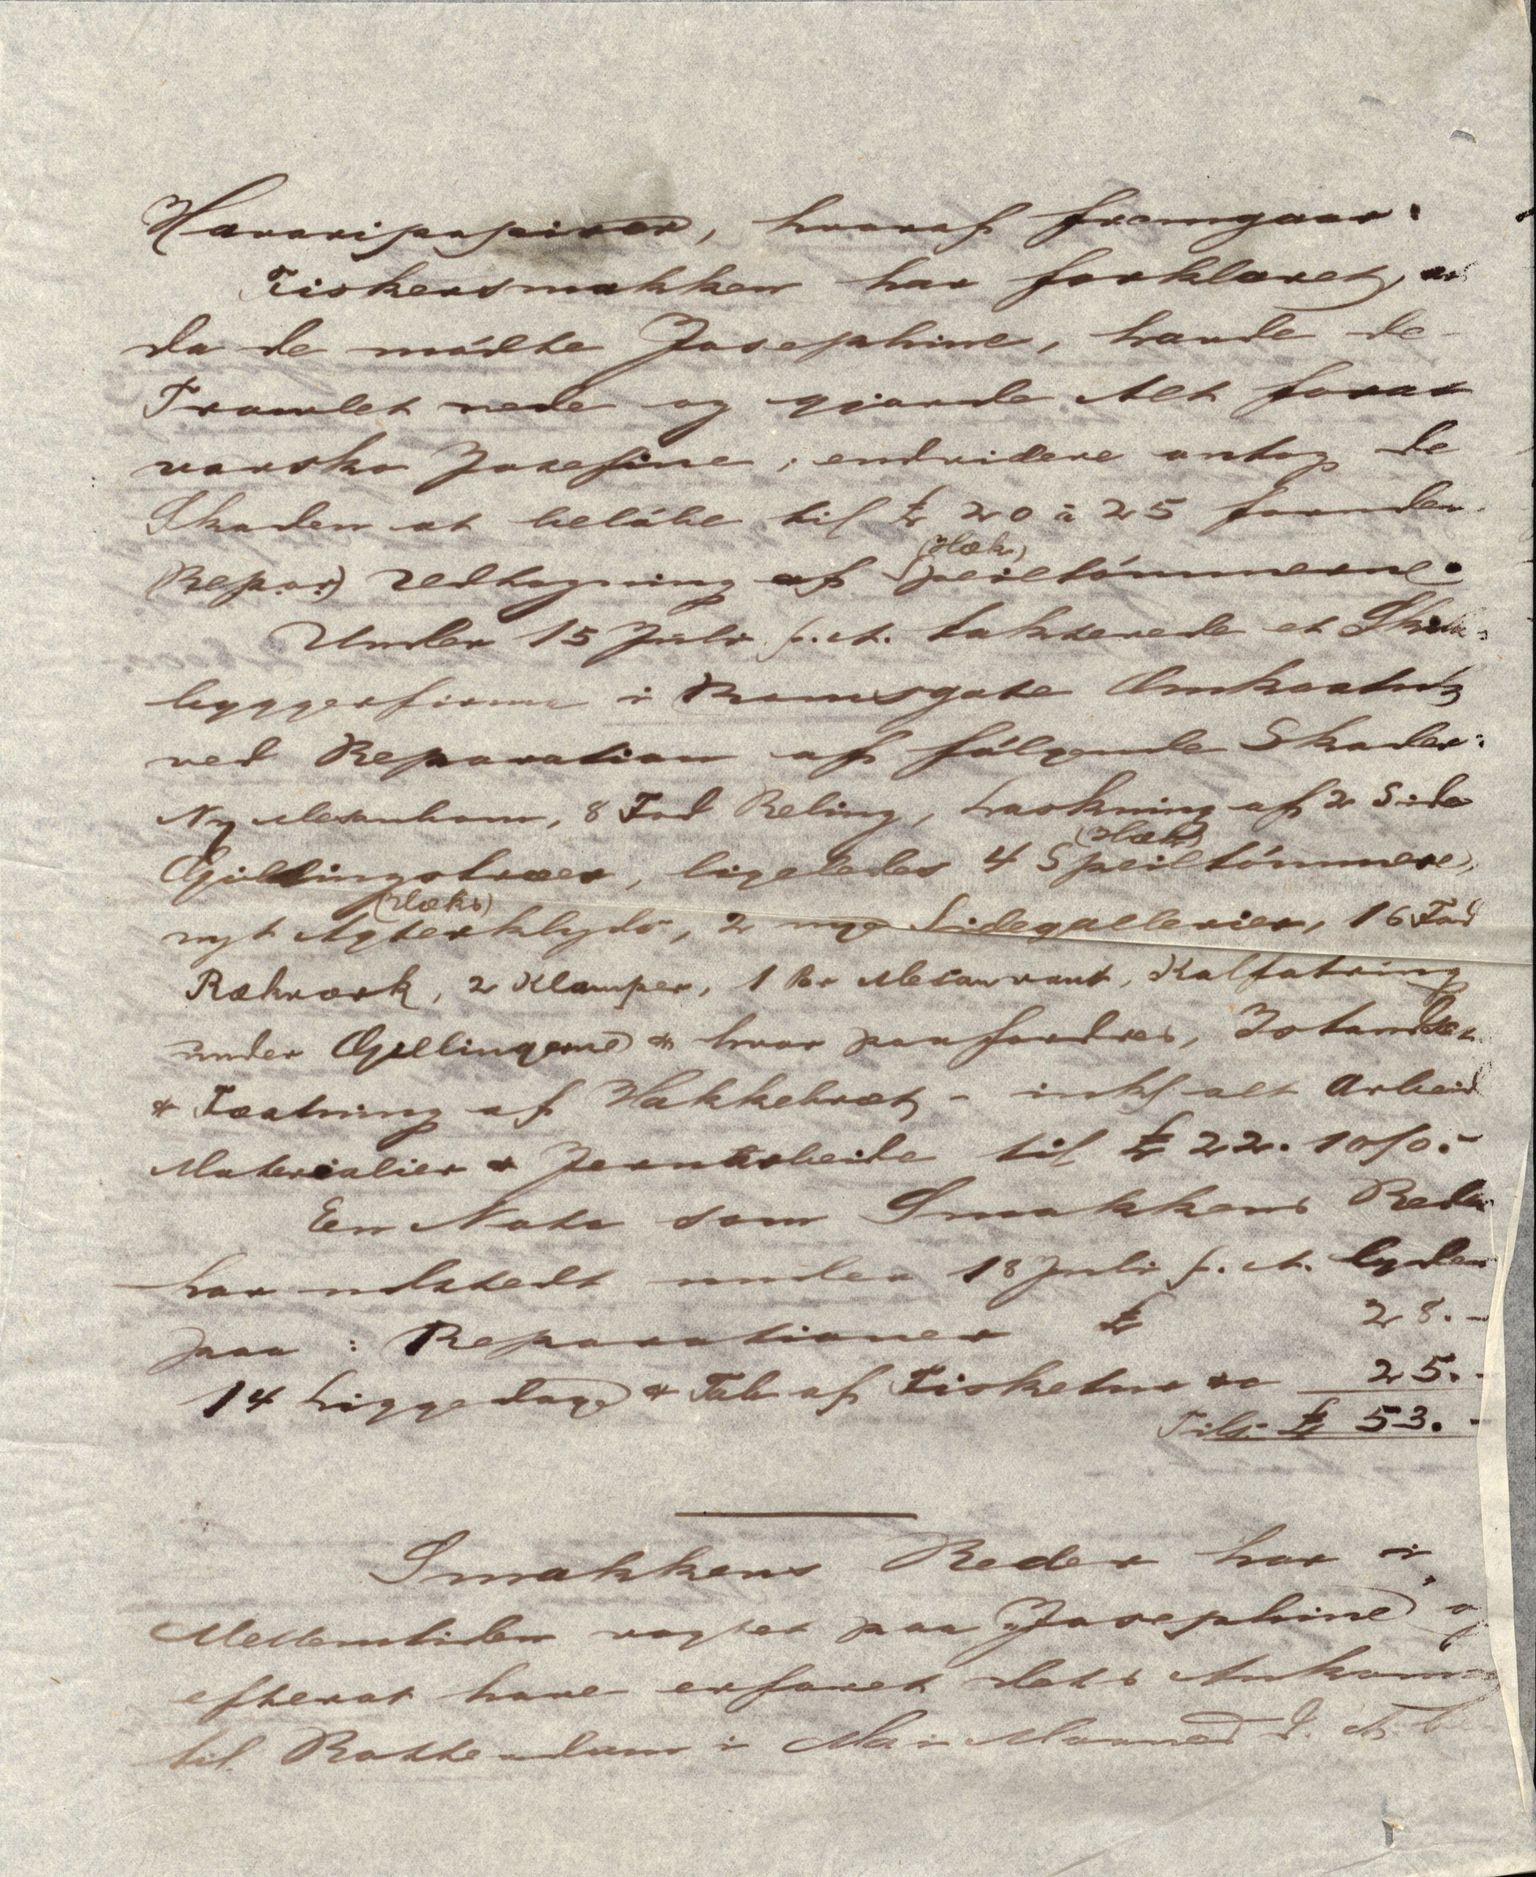 Havaripapirer, hvoraf fremgaar:
Fiskersmakken har forklaret, at
da de mödte Josephine, havde de
Trawlet nede og gjorde Alt forat
varsko Josefine, endvidere antog de
Skaden at belöbe til £ 20 à 25 foruden
(Repar.) Vedtagning af Speiltömmerne.
(Hæk)
Under 15 Juli s. A. takserede et Skibs-
byggerfirma i Ramsgate Omkostn.
ved Reparation af fölgende Skader:
Ny Mesanbom, 8 Fod Reling, Laskning af 2 Side
Gillingstræer, ligeledes 4 Speiltömmere,
(Hæk)
nyt Agterklyds, 2 nye Sidegallerier, 16 Fod
(Hæks)
Rækværk, 2 Klamper, 1 Par Mesanvant, Kalfatring
under Gillingerne & hvor paafordres, Istandsæt.
& Tætning af Hakkebræt, - inkl alt Arbeid
Materialier & Jernarbeide til £ 22. 10/0.-
En Nota som Smakkens Reder
har udstedt under 18 Juli s. A. lyder
paa: Reparationer £ 28.-
14 Liggedage & Tab af Fisketur 25.-
Tils. £ 53.-
Smakkens Reder har i
Mellemtiden vogtet paa Josephine og
efterat have erfaret dets Ankomst
til Rotterdam i Mai Maaned d. A.